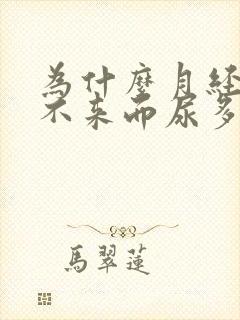 為什麼月經
不來而尿多
馬翠蓮